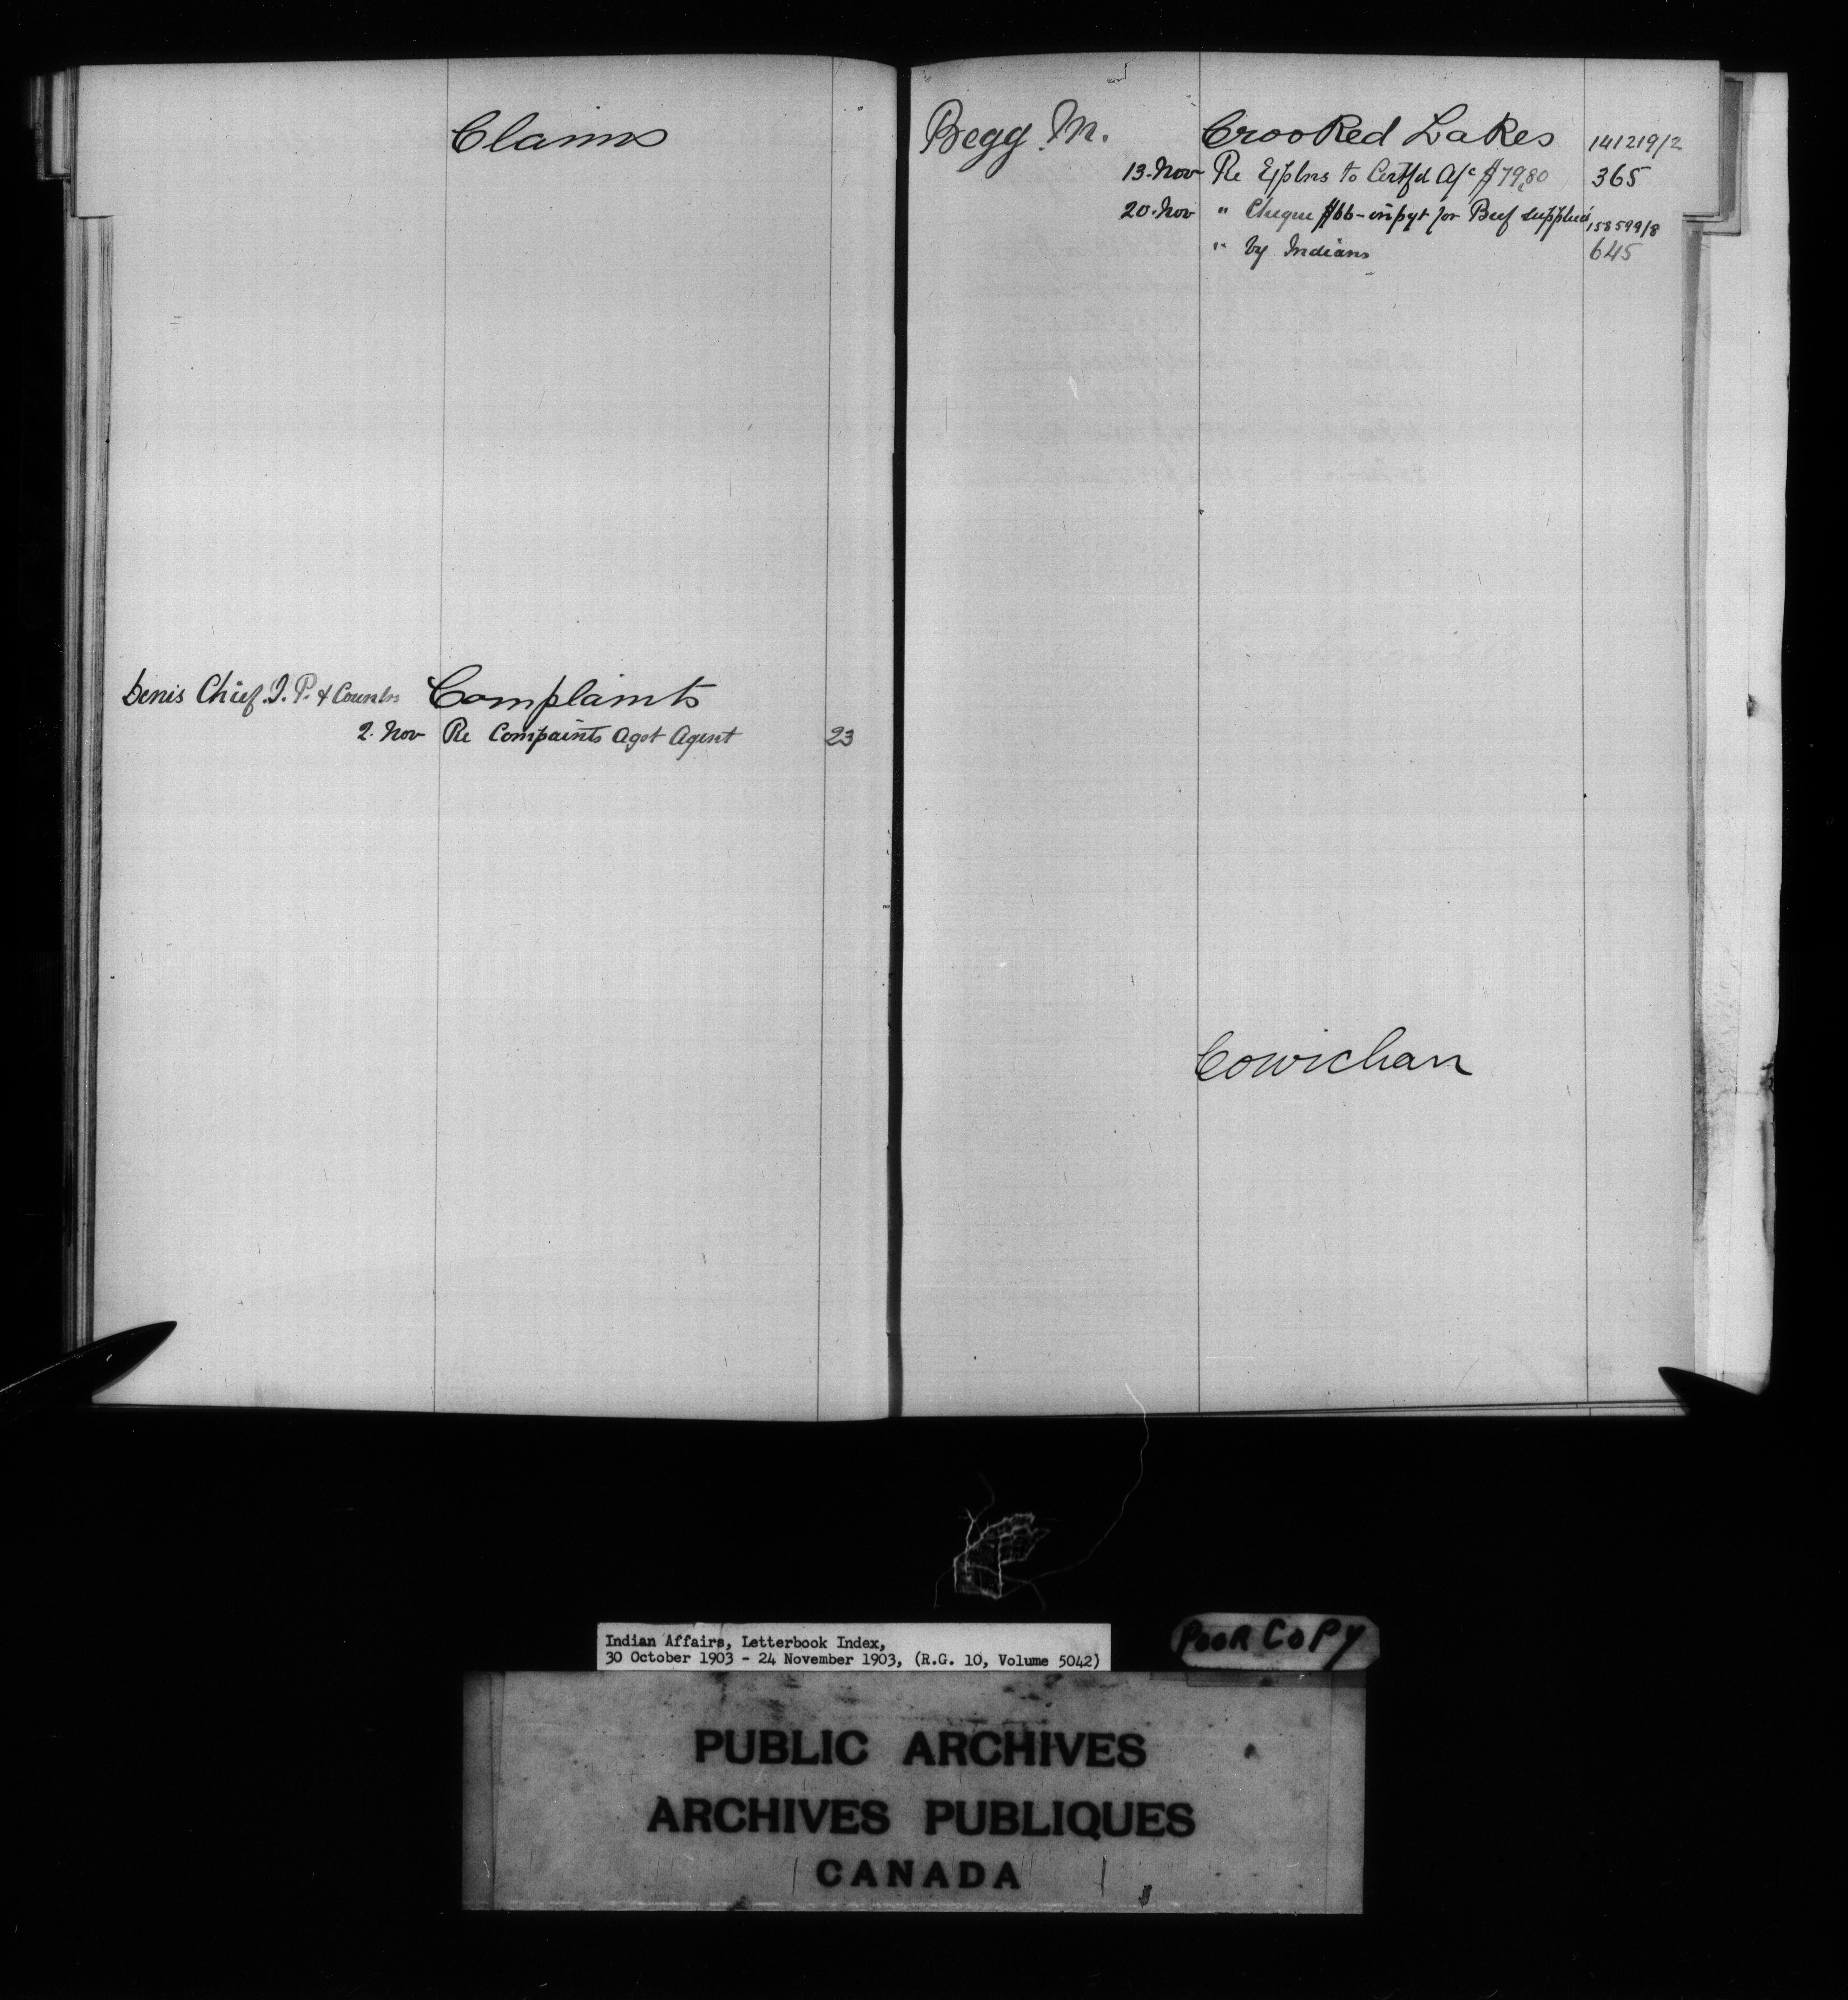 Claims
Denis Chief J. P. & Counlrs Complaints
2. Nov Re Compaints agst Agent 23
Begg M. Crooked Lakes 141219/2
13. Nov Re Explns to Certfd A/c $79.80 365
20. Nov " Cheque $66- in pyt for Beef supplied 158599/8
" by Indians 645
Cowichan
Indian Affairs, Letterbook Index,
30 October 1903 - 24 November 1903, (R.G. 10, Volume 5042)
POOR COPY
PUBLIC ARCHIVES
ARCHIVES PUBLIQUES
CANADA